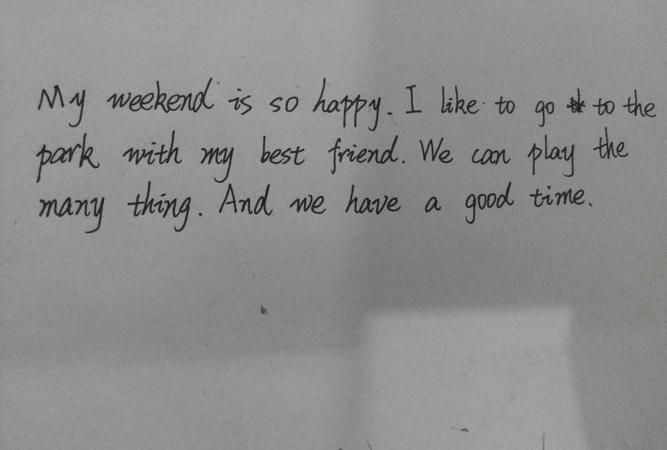 My weekend is so happy. I like to go to the
park with my best friend. We can play the
many thing. And we have a good time.